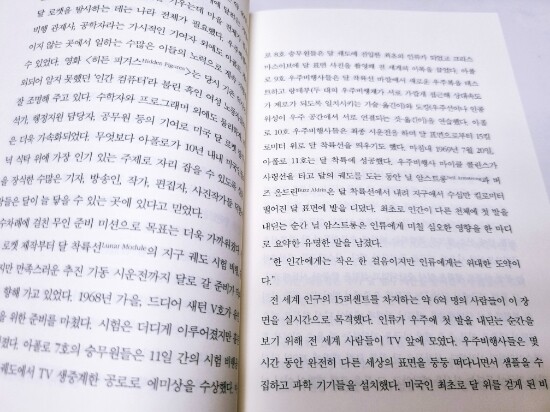 달 로켓을 발사하는 데는 나라 전체가 필요했다.
비행 관제사, 공학자라는 가시적인 기여자 외에도
이지 않는 곳에서 일하는 수많은 이들의 노력으로
수 있었다. 영화 《히든 피겨스Hidden Figures》는 당시 기존
되어 알지 못했던 '인간 컴퓨터'라 불린 흑인 여성
잘 조명해 주고 있다. 수학자와 프로그래머 외에도
석가, 행정지원 담당자, 공무원 등의 기여로 미국 달 로켓
은 더욱 가속화되었다. 무엇보다 아폴로가 10년 내내 미국
녁 식탁 위에 가장 인기 있는 주제로 자리 잡을 수 있도록
을 장식한 수많은 기자, 방송인, 작가, 편집자, 사진작가들
람들은 달이 늘 닿을 수 있는 곳에 있다고 믿었다.
수차례에 걸친 무인 준비 미션으로 목표는 더욱 가까워졌다.
로켓 제작부터 달 착륙선Lunar Module의 지구 궤도 시험 비행,
지만 만족스러운 추진 기동 시운전까지 달로 갈 준비가
향해 가고 있었다. 1968년 가을, 드디어 새턴 V호가
을 위한 준비를 마쳤다. 시험은 더디게 이루어졌지만
졌다. 아폴로 7호의 승무원들은 11일 간의 시험 비행
궤도에서 TV 생중계한 공로로 에미상을 수상했다.
로 8호 승무원들은 달 궤도에 진입한 최초의 인류가 되었고 크리스
마스이브에 달 표면 사진을 촬영해 전 세계의 이목을 끌었다. 아폴
로 9호 우주비행사들은 달 착륙선 비행에서 새로운 우주복을 테스
트하고 랑데부(두 대의 우주비행체가 서로 가깝게 접근해 상대속도
가 제로가 되도록 일치시키는 기술-옮긴이)와 도킹(우주선이나 인공
위성이 우주 공간에서 서로 연결되는 것-옮긴이)을 연습했다. 아폴
로 10호 우주비행사들은 최종 시운전을 하며 달 표면으로부터 15킬
로미터 위로 달 착륙선을 띄우기도 했다. 마침내 1969년 7월 20일,
아폴로 11호는 달 착륙에 성공했다. 우주비행사 마이클 콜린스가
사령선을 타고 달의 궤도를 도는 동안 닐 암스트롱Neil Armstrong과 버
즈 올드린Buzz Aldrin은 달 착륙선에서 내려 지구에서 수십만 킬로미터
떨어진 달 표면에 발을 디뎠다. 최초로 인간이 다른 천체에 첫 발을
내딛는 순간 닐 암스트롱은 인류에게 미칠 심오한 영향을 한 마디
로 요약한 유명한 말을 남겼다.
"한 인간에게는 작은 한 걸음이지만 인류에게는 위대한 도약이
다."
전 세계 인구의 15퍼센트를 차지하는 약 6억 명의 사람들이 이 장
면을 실시간으로 목격했다. 인류가 우주에 첫 발을 내딛는 순간을
보기 위해 전 세계 사람들이 TV 앞에 모였다. 우주비행사들은 몇
시간 동안 완전히 다른 세상의 표면을 둥둥 떠다니면서 샘플을 수
집하고 과학 기기들을 설치했다. 미국인 최초로 달 위를 걷게 된 비